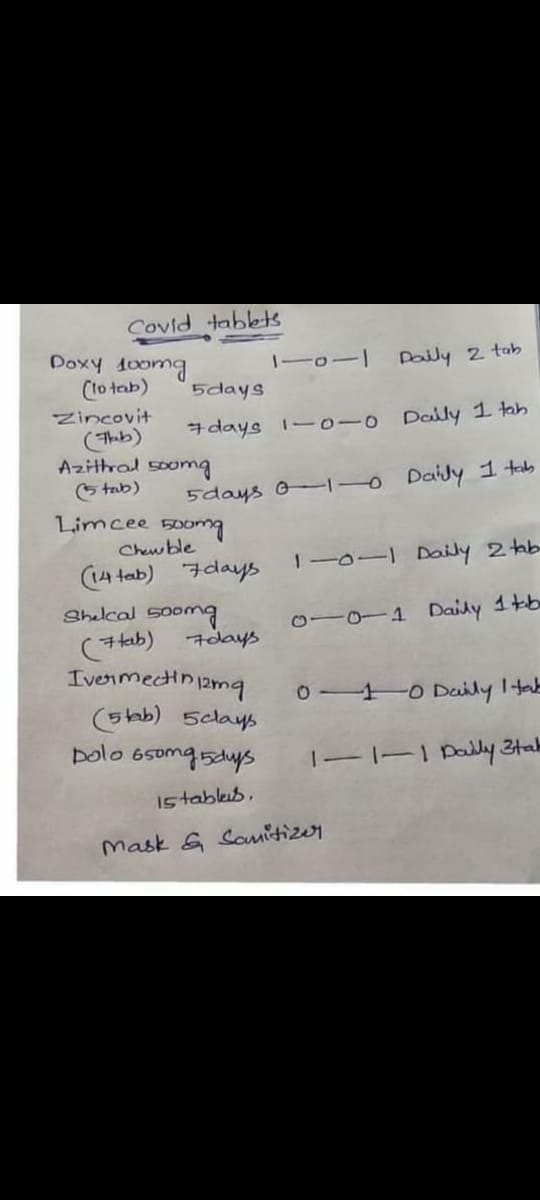 Covid tablets
Doxy 100mg 1-0-1 Daily 2 tab
(10 tab) 5days
Zincovit
(7tab) 7days 1-0-0 Daily 1 tab
Azithral 500mg
(5 tab) 5days 0-1-0 Daily 1 tab
Limcee 500mg
Chewble
(14 tab) 7days 1-0-1 Daily 2 tab
Shelcal 500mg 0-0-1 Daily 1 tab
(7tab) 7days
Ivermectin 12mg 0-1-0 Daily 1 tab
(5 tab) 5days
Dolo 650mg 5dys 1-1-1 Daily 3tab
15 tablets.
Mask & Sanitizer